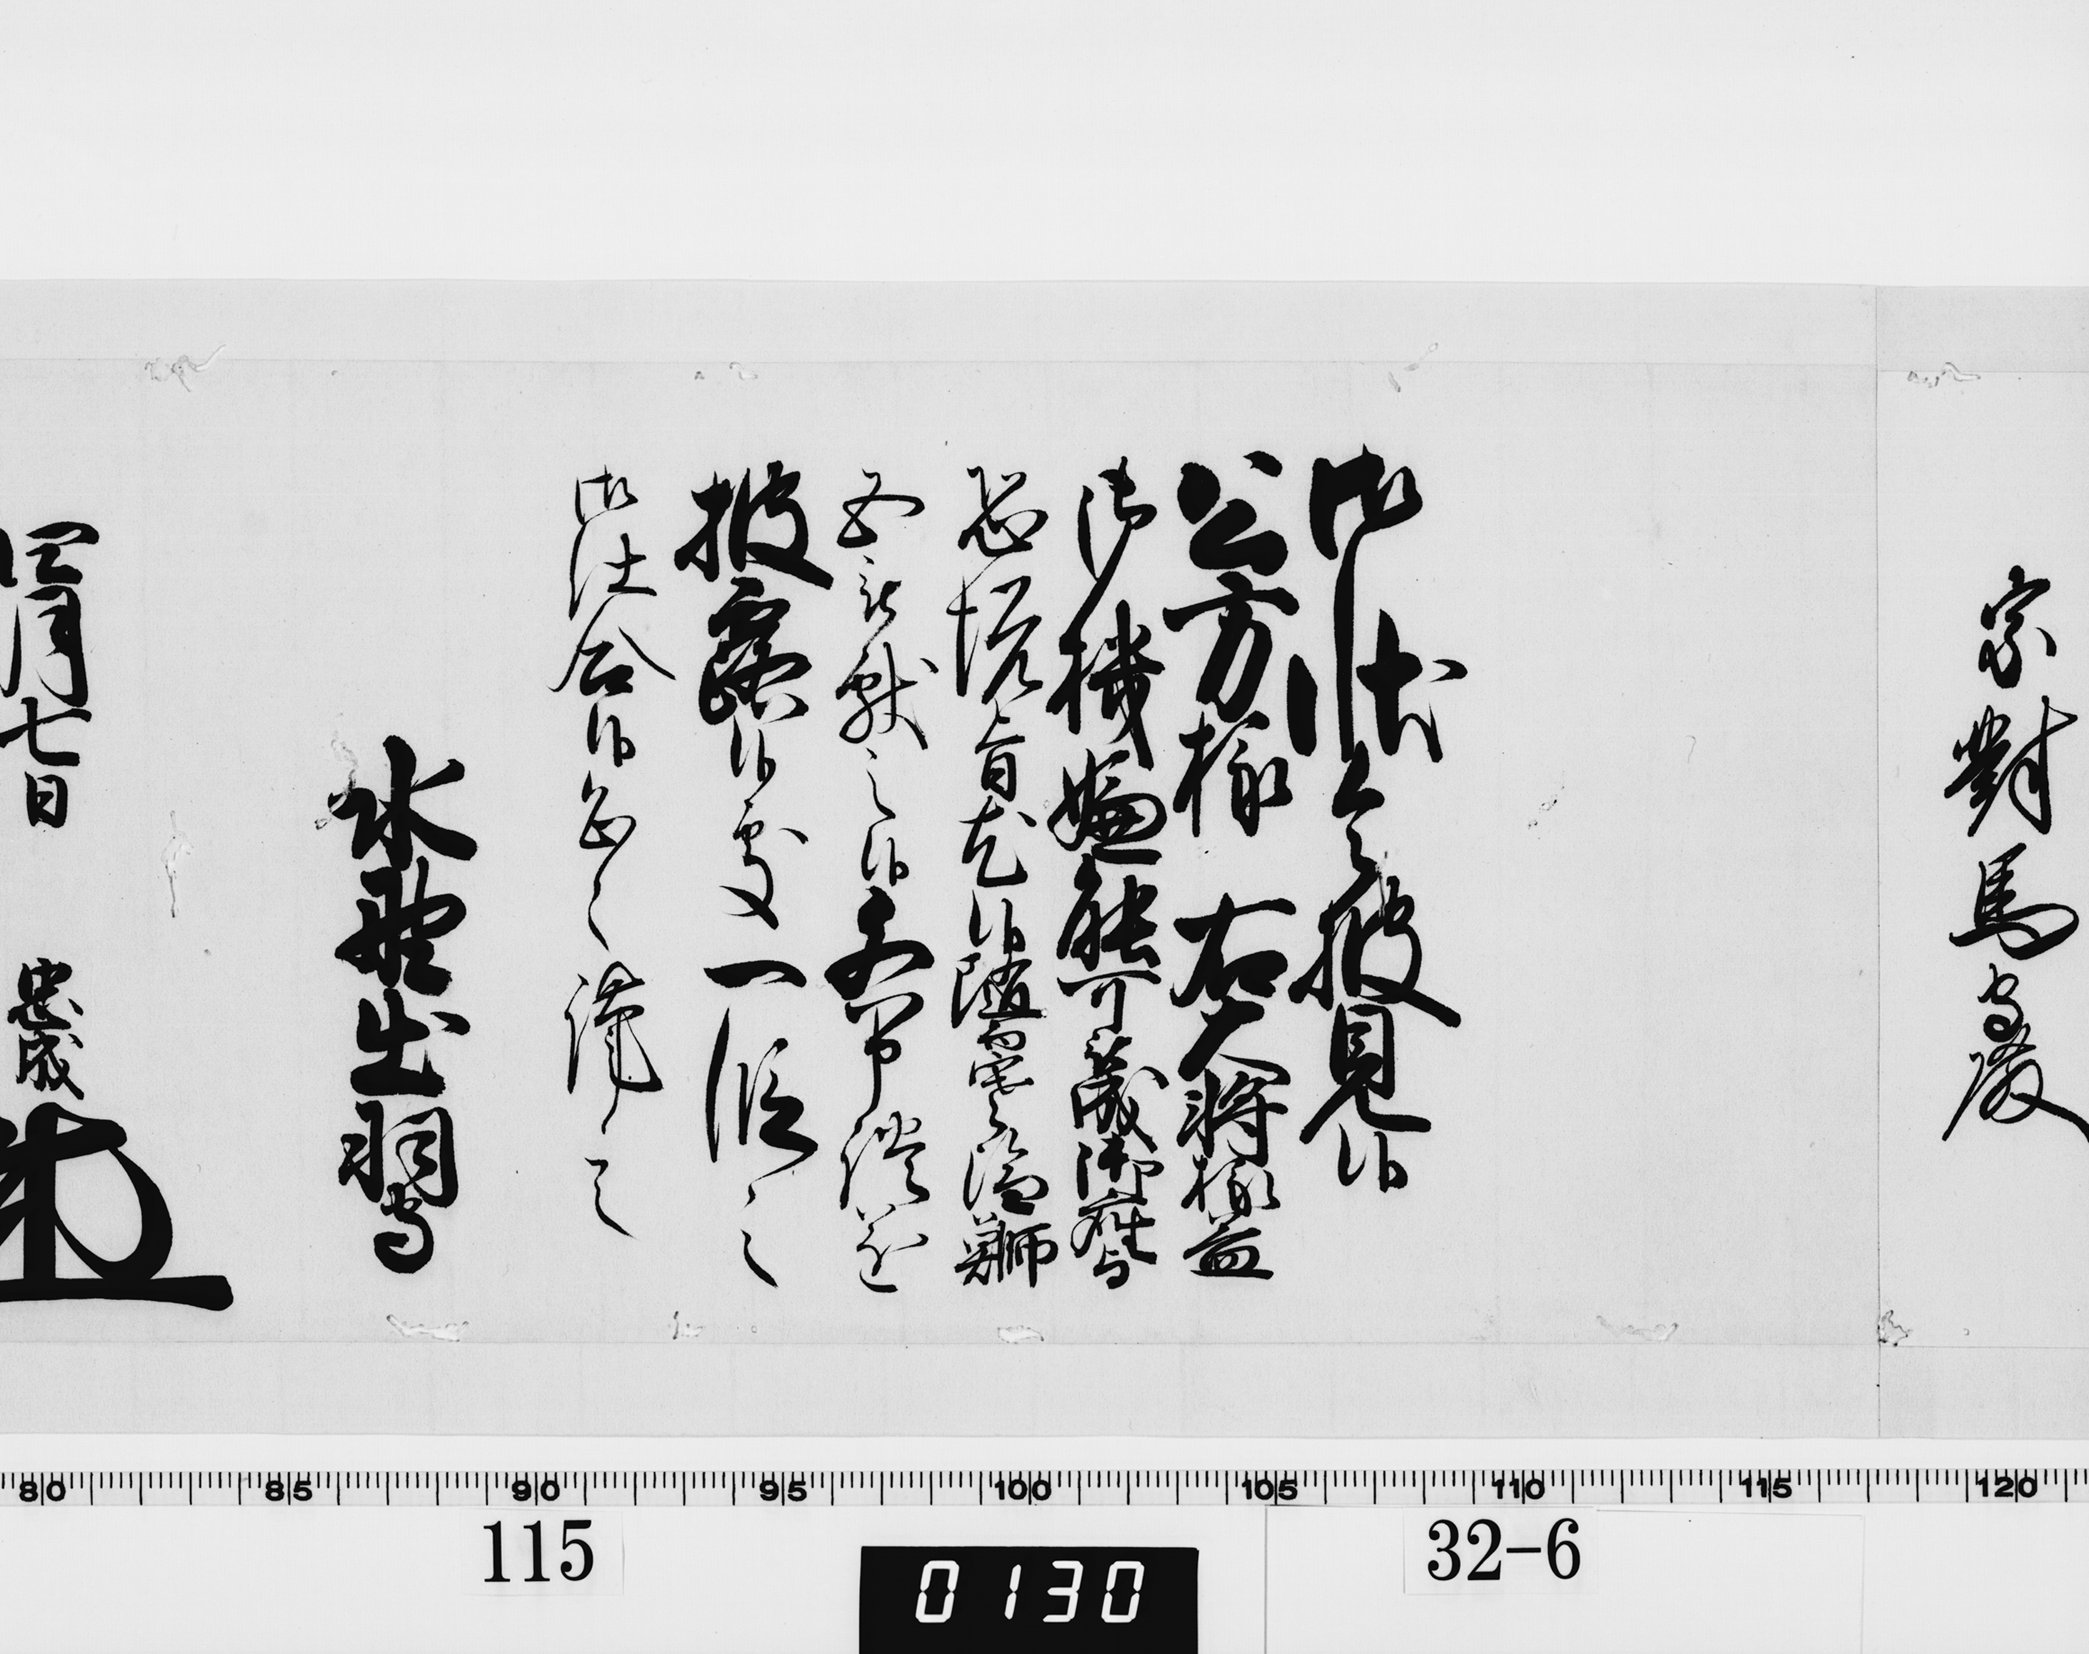 宗對馬守殿
御状令披見候
公方様 右大将様益
御機嫌能可被成御座与
恐悦旨尤候随而
献之候
披露候處一段之
御仕合候恐々謹言
水野出羽守
四月七日 忠成
80 85 90 95 100 105 110 115 120
115 32-6
0130